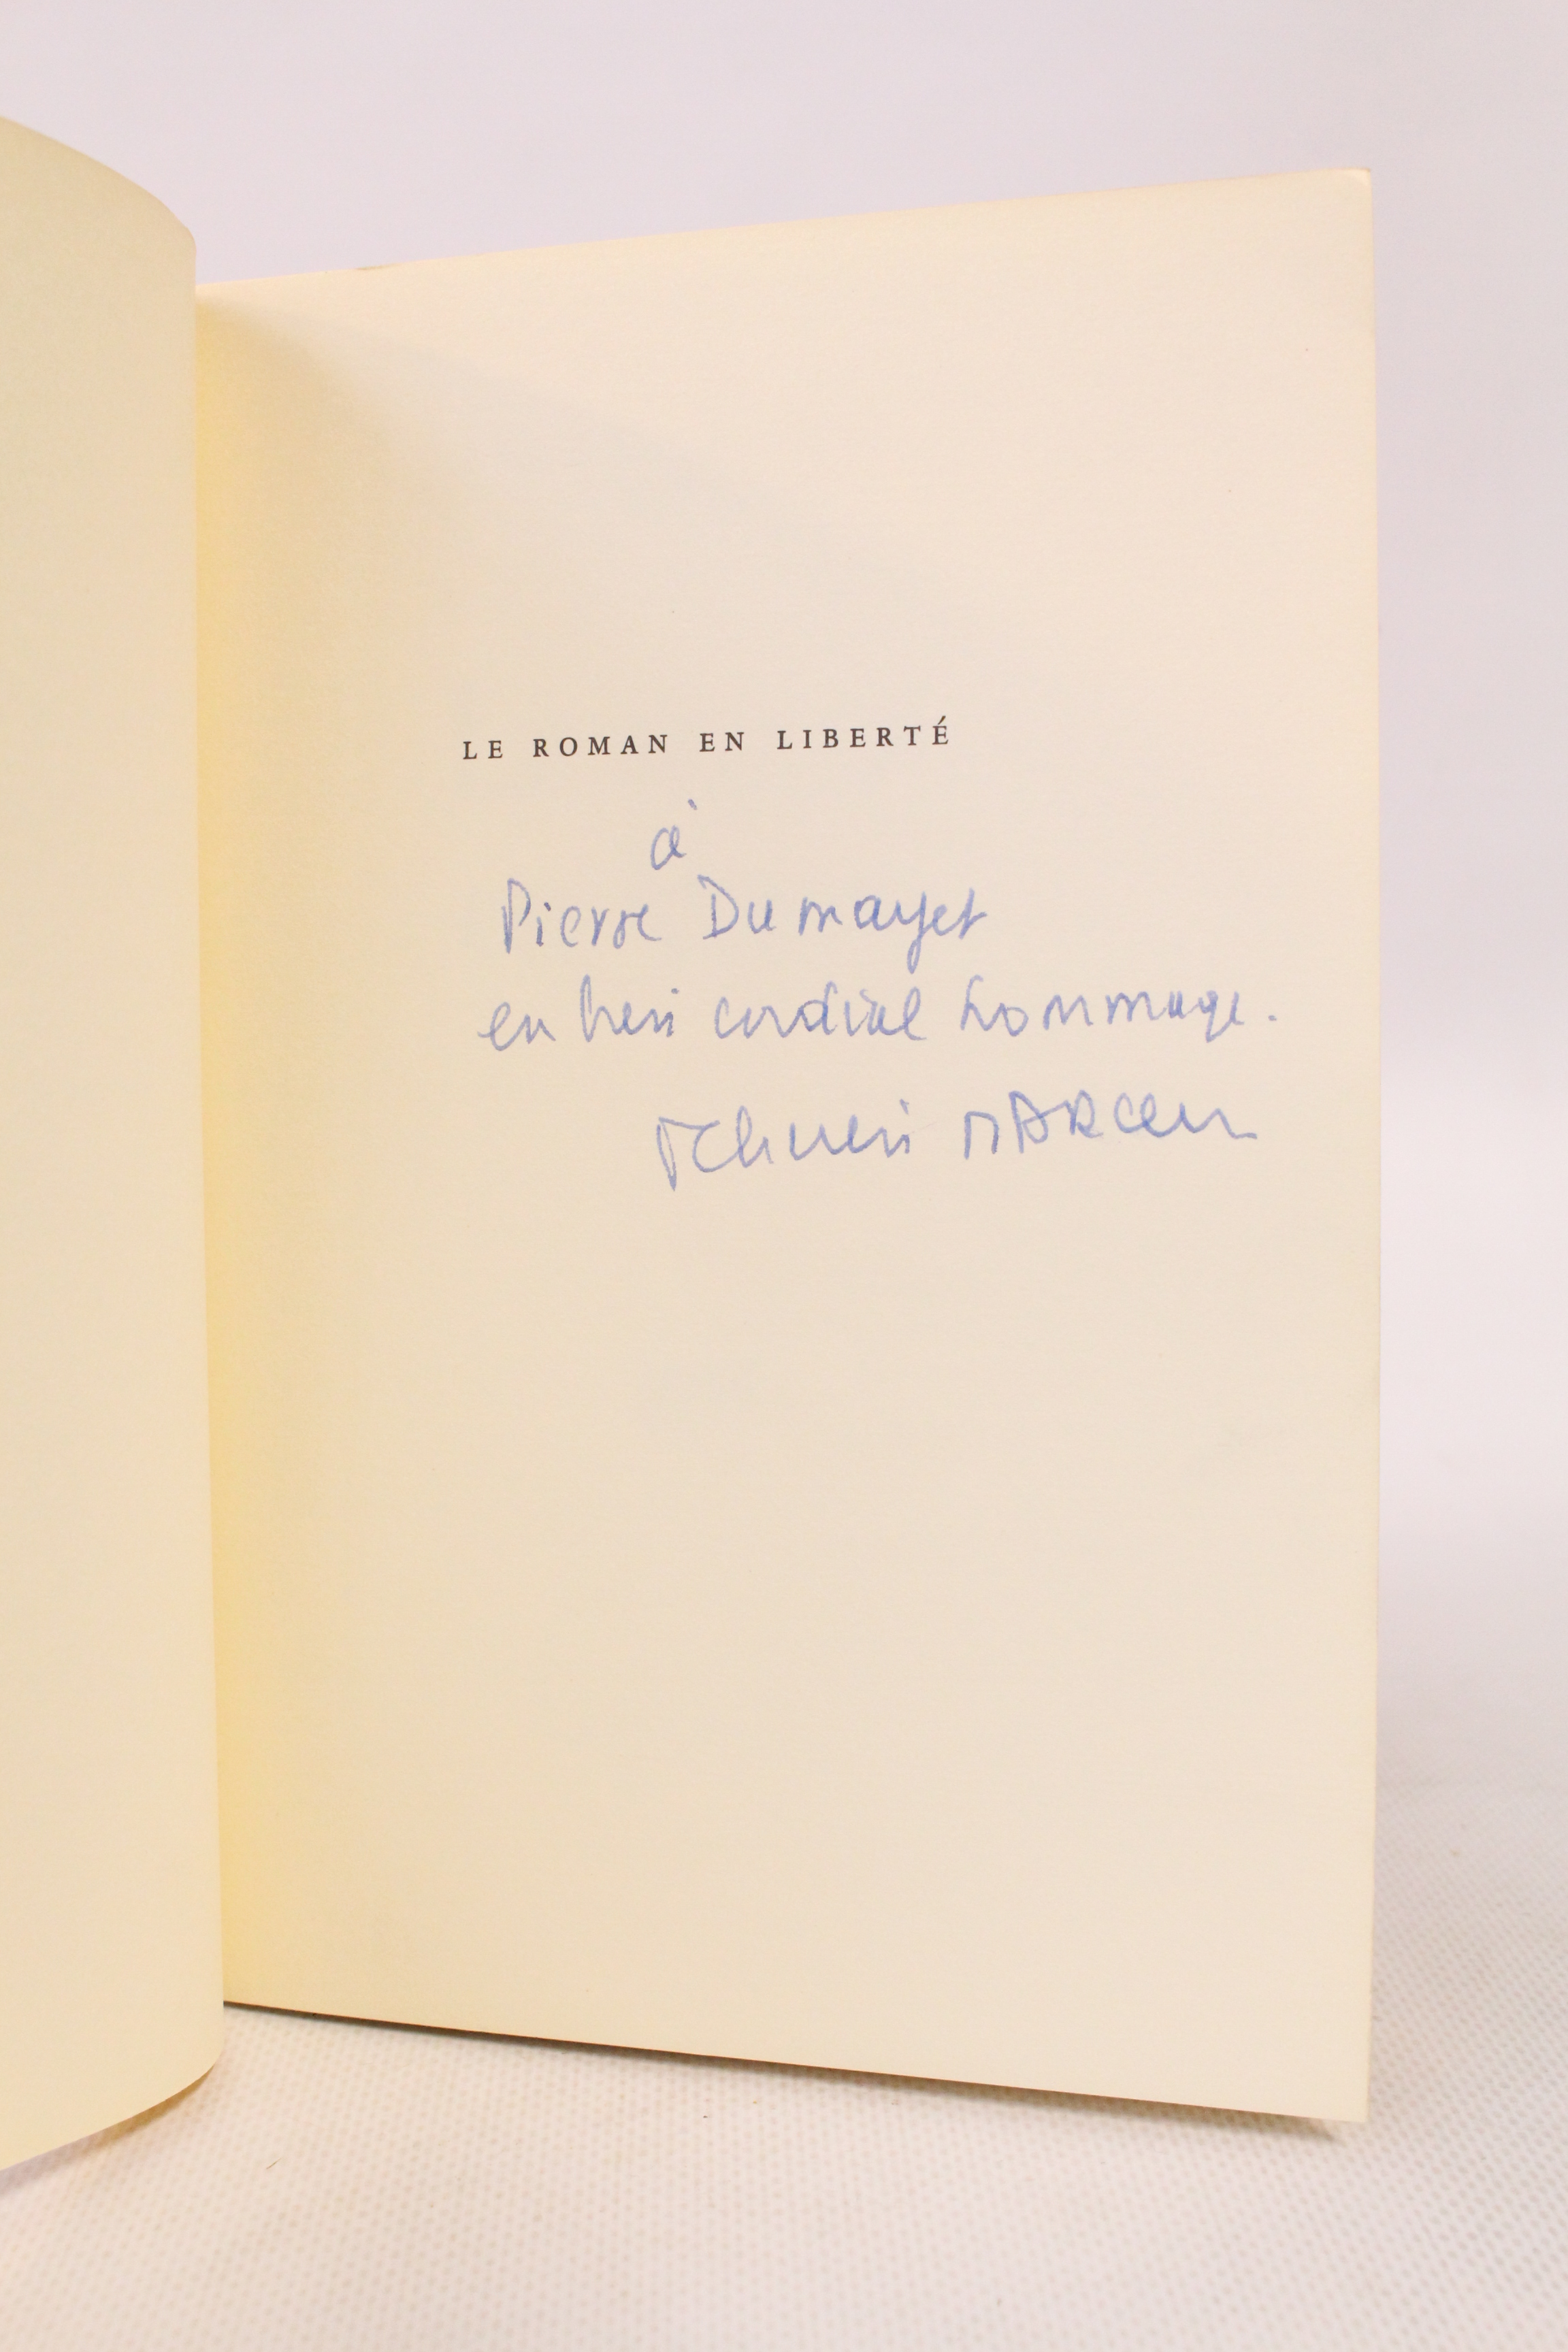 LE ROMAN EN LIBERTÉ
à
Pierre Dumayet
en très cordial hommage.
Félicien MARCEAU